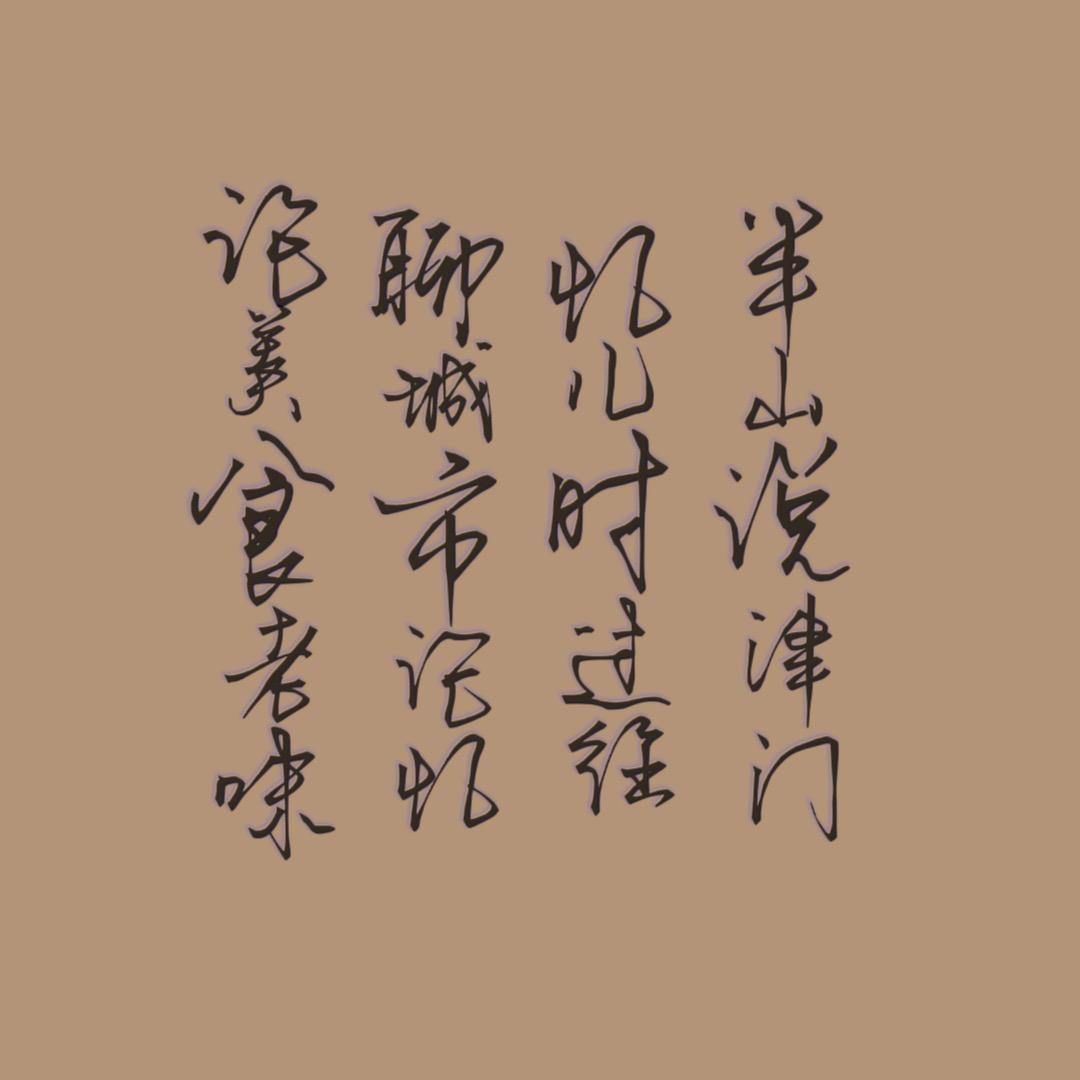 半山说津门
忆儿时过往
聊城市记忆
论美食老味